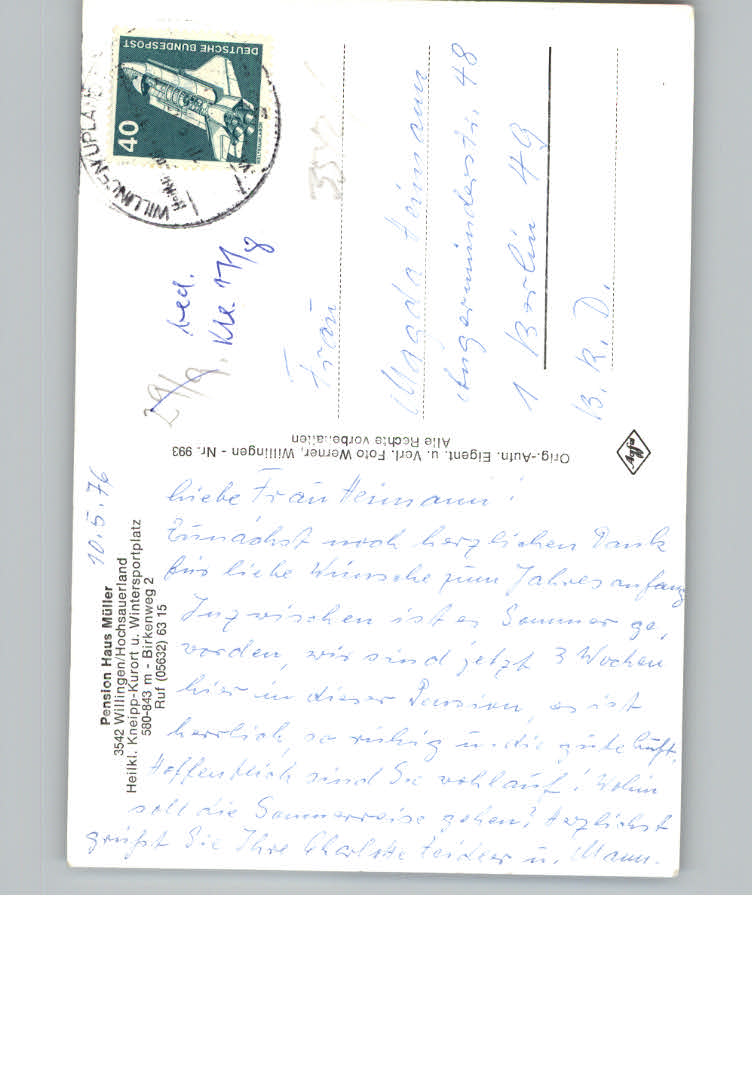 Pension Haus Müller
3542 Willingen/Hochsauerland
Heilkl. Kneipp-Kurort u. Wintersportplatz
580-843 m - Birkenweg 2
Ruf (05632) 63 15
10.5.76
Liebe Frau Heimann!
Zunächst noch herzlichen Dank
für liebe Wünsche zum Jahresanfang
Inzwischen ist es Sommer ge-
worden, wir sind jetzt 3 Wochen
hier in dieser Pension, es ist
herrlich, so ruhig u. die gute Luft.
Hoffentlich sind Sie wohlauf! Wohin
soll die Sommerreise gehen? Herzlichst
grüßt Sie Ihre Charlotte u. Mann.
Orig.-Aufn. Eigent. u. Verl. Foto Werner, Willingen - Nr. 993
Alle Rechte vorbehalten
Agfa
DEUTSCHE BUNDESPOST
40
WILLINGEN (UPLAND)
29/9.
Kle 17/8
Frau
Magda Heimann
Angermünderstr. 48
1 Berlin 49
B.R.D.